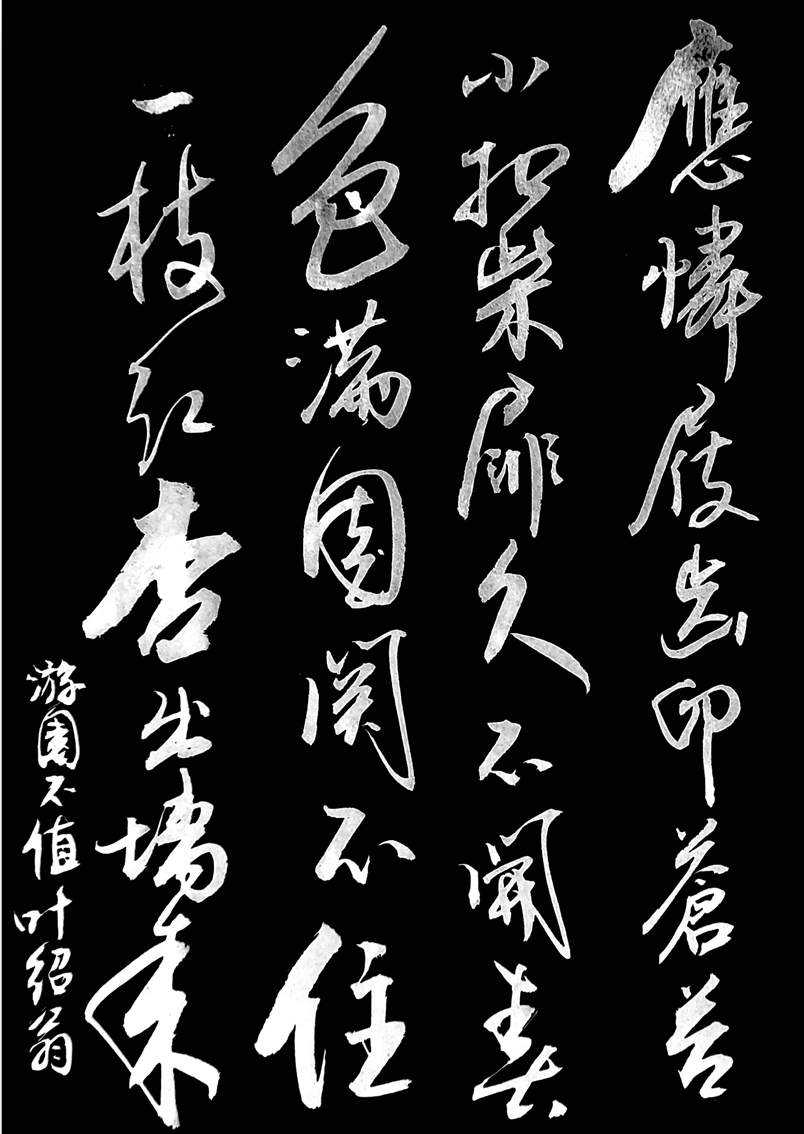 應憐屐齒印蒼苔
小扣柴扉久不開春
色滿園関不住
一枝红杏出墙来
游園不值叶绍翁